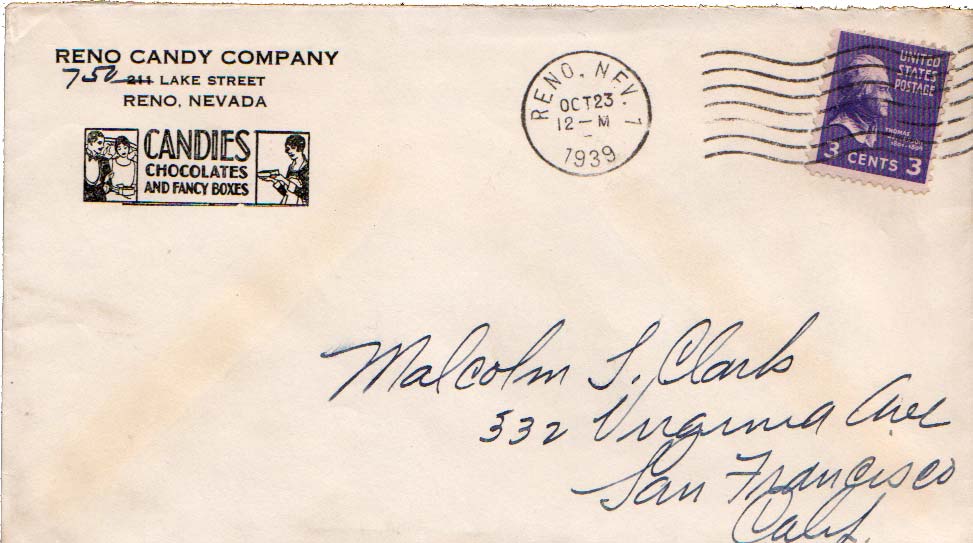 RENO CANDY COMPANY
750 211 LAKE STREET
RENO, NEVADA
CANDIES
CHOCOLATES
AND FANCY BOXES
RENO, NEV. 1
OCT 23
12-M
1939
UNITED
STATES
POSTAGE
THOMAS
3 CENTS 3
Malcolm S. Clark
332 Virginia Ave
San Francisco
Calif.